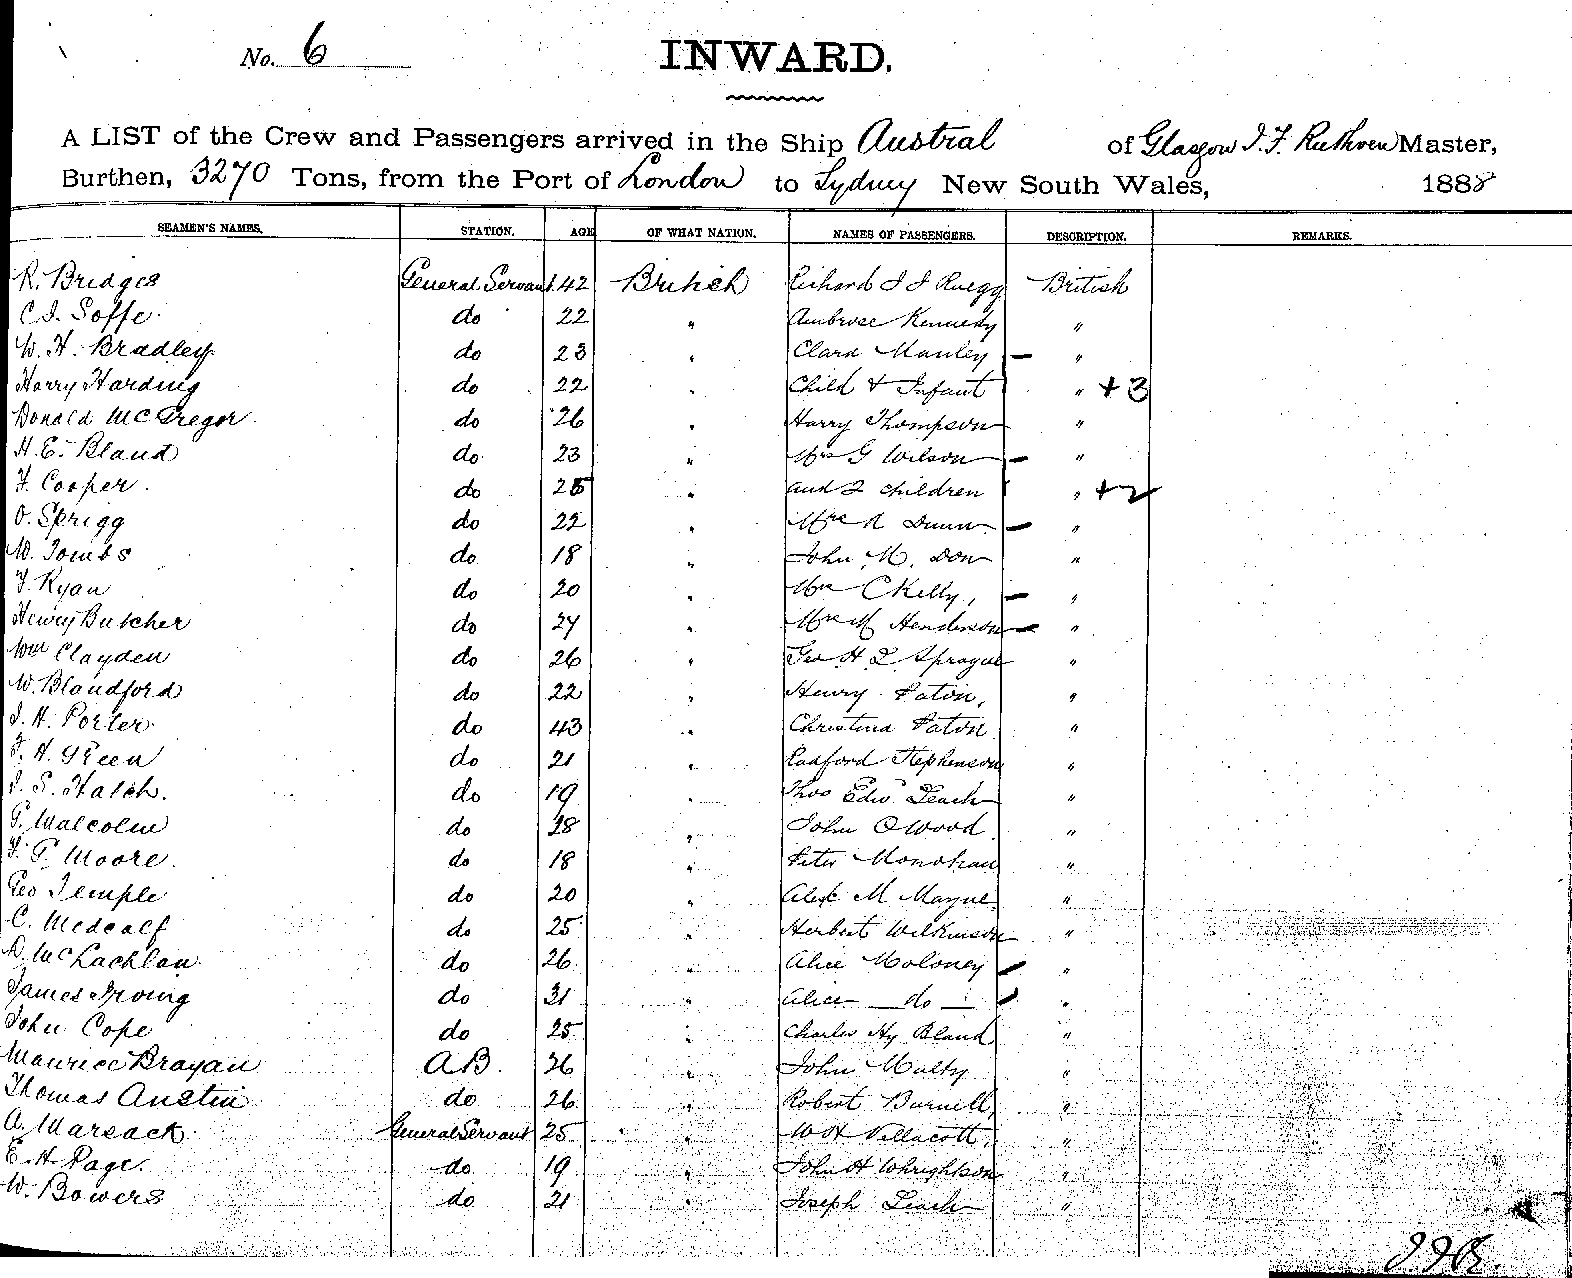 No. 6
INWARD.
A LIST of the Crew and Passengers arrived in the Ship Austral of Glasgow J. F. Ruthven Master,
Burthen, 3270 Tons, from the Port of London to Sydney New South Wales, 1888
SEAMEN'S NAMES. STATION. AGE OF WHAT NATION. NAMES OF PASSENGERS. DESCRIPTION. REMARKS.
R. Bridges General Servant 42 British Richard J J Ruegg British
C J. Soffe do 22 " Ambrose Kennedy "
W. H. Bradley do 23 " Clara Manley — "
Harry Harding do 22 " Child & Infant " + 3
Donald McGregor do 26 " Harry Thompson "
H. E. Bland do 23 " Mrs G Wilson — "
F. Cooper do 25 " and 2 children " + 2
O. Sprigg do 22 " Mrs A Dunn — "
W. Tombs do 18 " John M. Don "
F. Ryan do 20 " Mrs C Kelly, — "
Henry Butcher do 27 " Mrs M Henderson — "
Wm Clayden do 26 " Geo H L Sprague "
W. Blandford do 22 " Henry Paton, "
J. H. Porter do 43 " Christina Paton "
F. H. Green do 21 " Radford Stephenson "
J. S. Hatch. do 19 " Thos Edw Leach "
G. Malcolm do 28 " John O Wood "
F. G. Moore. do 18 " Peter Monohan "
Geo Temple do 20 " Alex M Mayne "
C. Medcalf do 25 " Herbert Wilkinson "
D. McLachlan do 26 " Alice Moloney — "
James Irving do 31 " Alice do — "
John Cope do 25 " Charles Hy Bland "
Maurice Brayan AB. 36 " John Multy "
Thomas Austin do 26 " Robert Burnell, "
A. Marsack General Servant 25 " W H Vellacott, "
E. H. Page. do 19 " John H Whrightson "
W. Bowers do 21 " Joseph Leach "